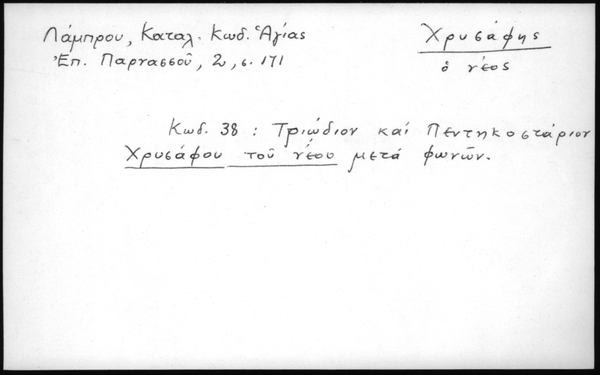 Λάμπρου, Καταλ. Κωδ. Ἁγίας
Ἐπ. Παρνασσοῦ, 2, σ. 171
Χρυσάφης
ὁ νέος
Κωδ. 38 : Τριῴδιον καί Πεντηκοστάριον
Χρυσάφου τοῦ νέου μετά φωνῶν.